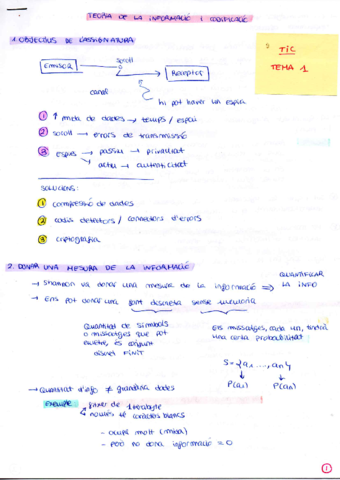 TEORIA DE LA INFORMACIÓ I CODIFICACIÓ
1. OBJECTIUS DE L'ASSIGNATURA
2. TIC
TEMA 1
Emissor
soroll
Receptor
canal
hi pot haver un espia
① ↑ quantitat de dades → temps / espai
② soroll → errors de transmissió
③ espies → passiu → privacitat
actiu → autenticitat
SOLUCIONS:
① compressió de dades
② codis detectors / correctors d'errors
③ criptografia
2. DONAR UNA MESURA DE LA INFORMACIÓ
QUANTIFICAR
LA INFO
→ Shannon va donar una mesura de la informació ⇒
→ Ens pot donar una font discreta sense memòria
Quantitat de símbols
o missatges que pot
emetre, és conjunt
discret FINIT
Els missatges, cada un, tindrà
una certa probabilitat
S = {a₁ ..., aₙ}
P(a₁) P(aₙ)
→ Quantitat d'info ≠ grandària dades
EXEMPLE: fitxer de 1 terabyte
només té caràcters blancs
- ocupa molt (mida)
- però no dona informació = 0
①